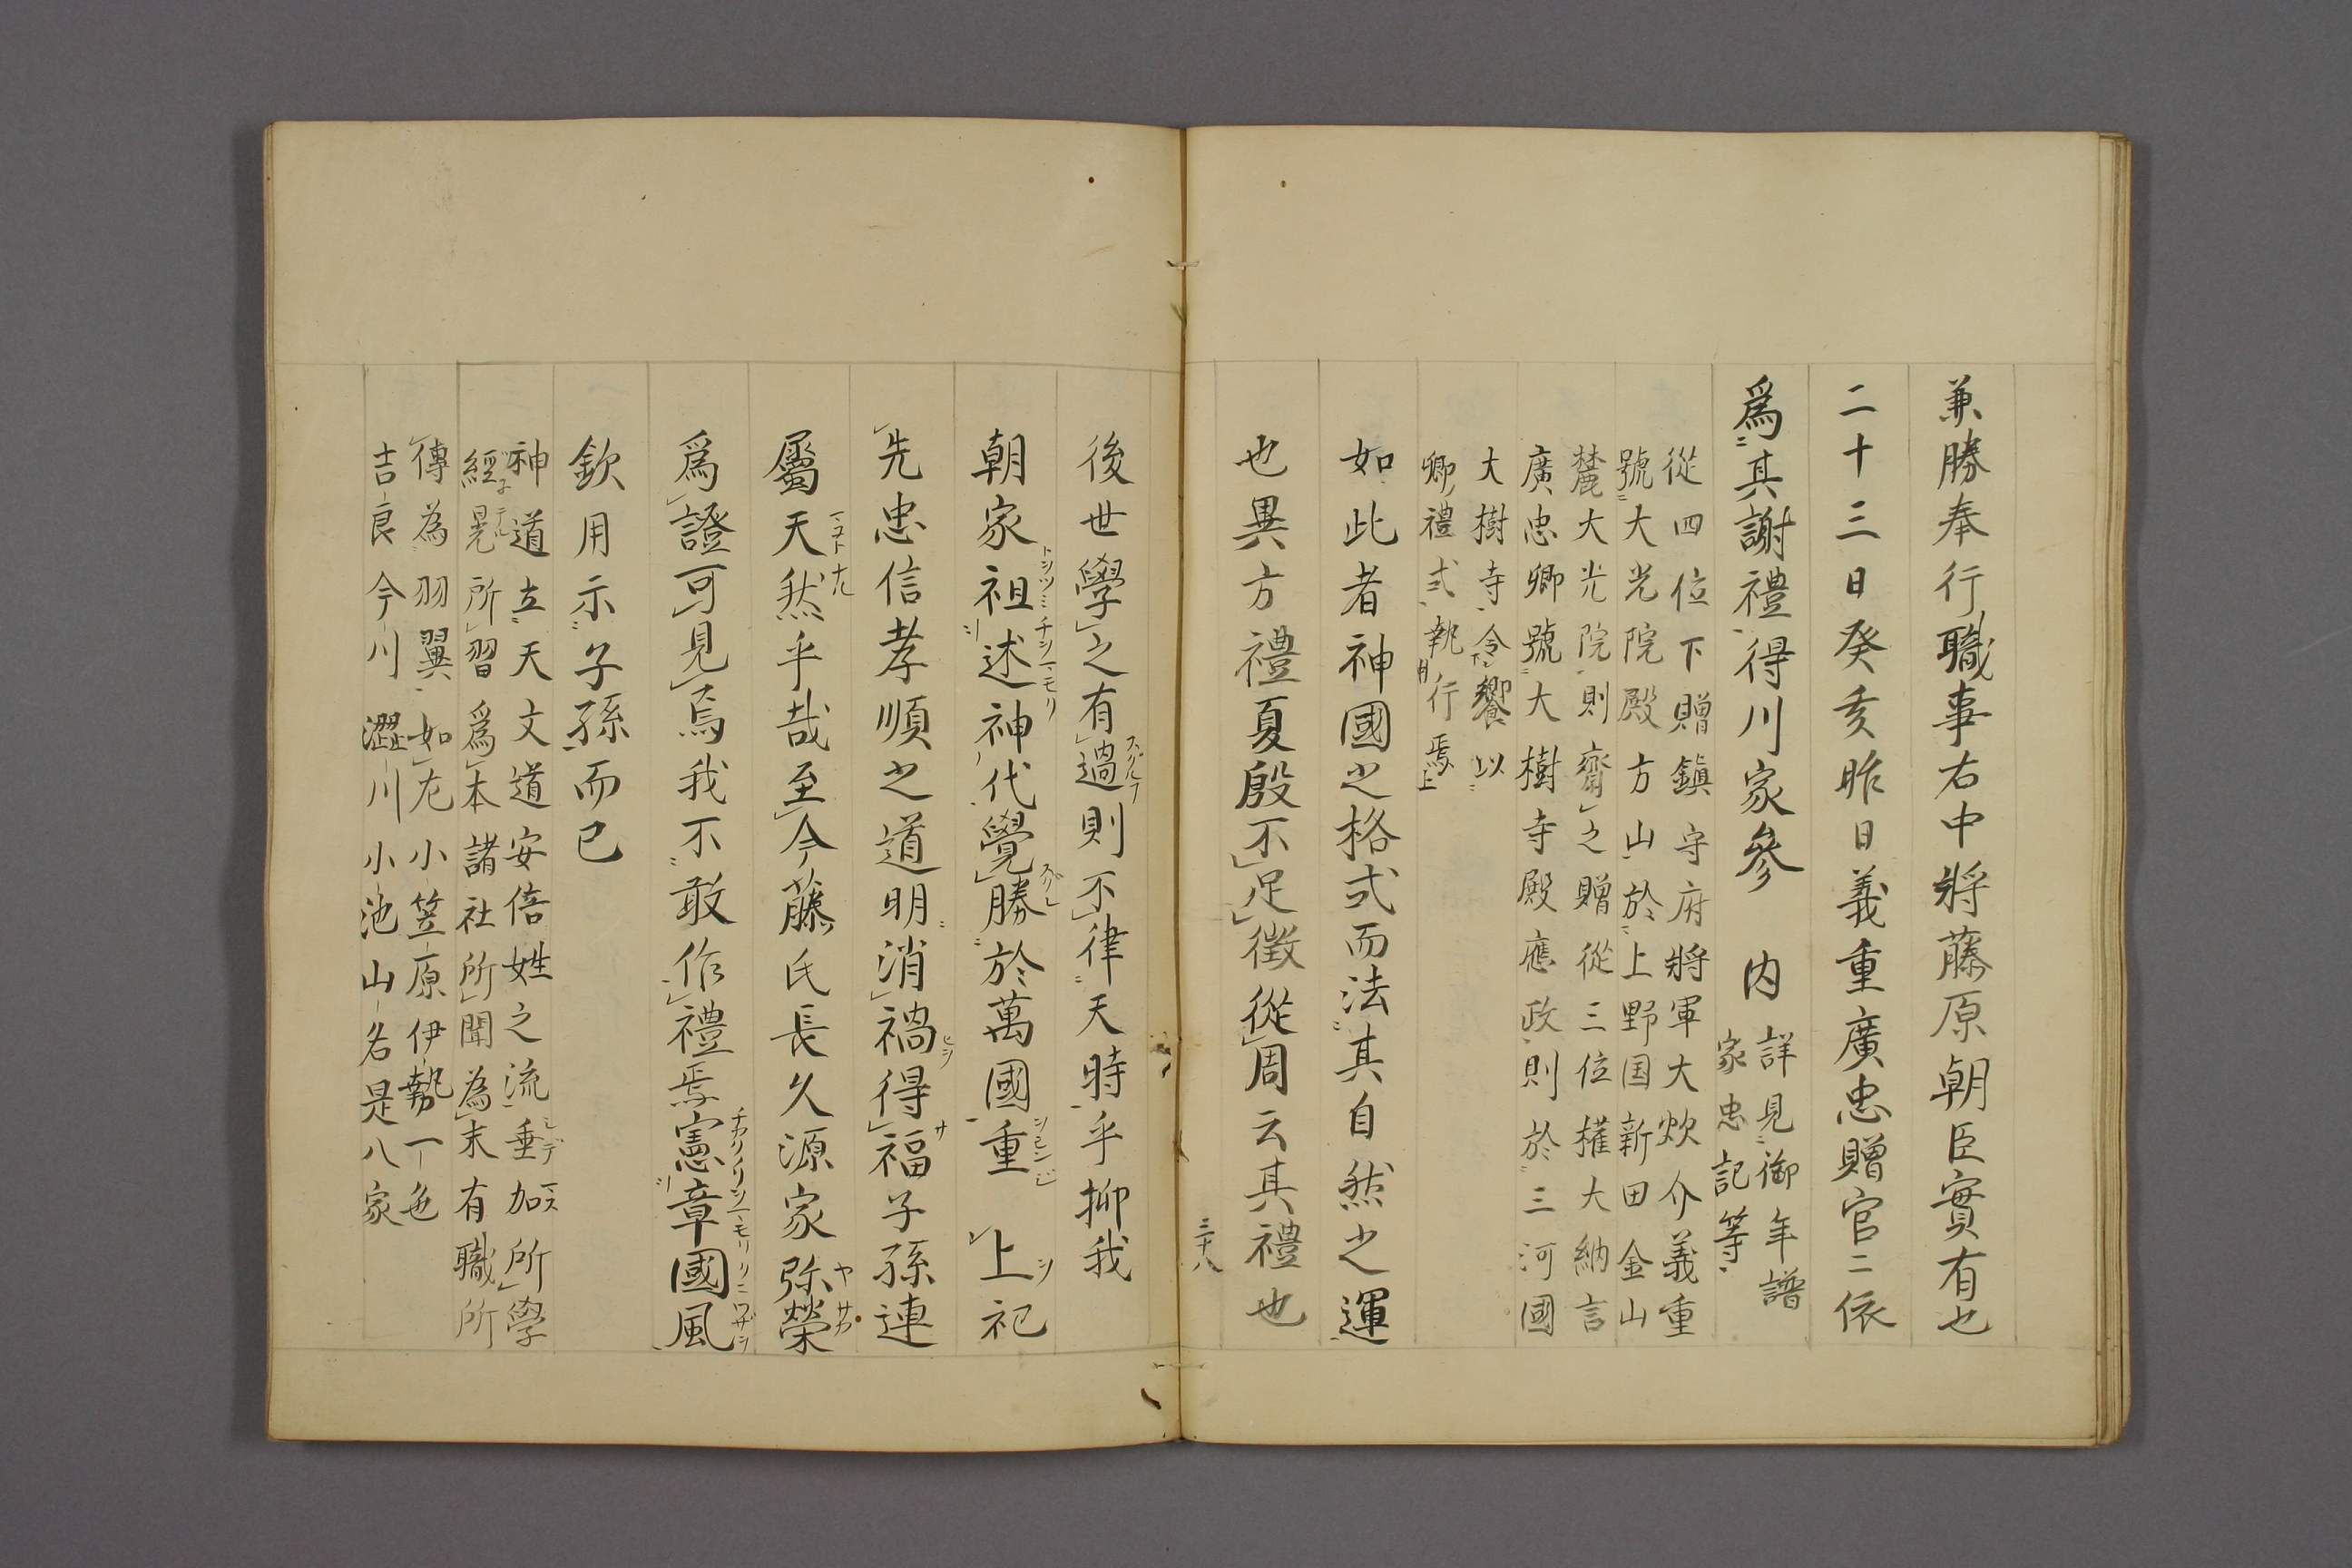 兼勝奉行職事右中將藤原朝臣實有也
二十三日癸亥昨日義重廣忠贈官ニ依
爲其謝禮得川家參　内
詳見御年譜
家忠記等
從四位下贈鎮守府將軍大炊介義重
號大光院殿方山於上野国新田金山
麓大光院則齋之贈從三位權大納言
廣忠卿號大樹寺殿應政則於三河國
大樹寺令饗以
卿禮式執行焉
如此者神國之格式而法其自然之運
也異方禮夏殷不足徴從周云其禮也
三十八
後世學之有過則不律天時乎抑我
朝家祖述神代覺勝於萬國重　上祀
先忠信孝順之道明消禍得福子孫連
屬天然乎哉至今藤氏長久源家弥榮
爲證可見焉我不敢作禮焉憲章國風
欽用示子孫而已
神道立天文道安倍姓之流垂加所學
經晃所習爲本諸社所聞為末有職所
傳為羽翼如尤小笠原伊勢一色
吉良今川澀川小池山名是八家